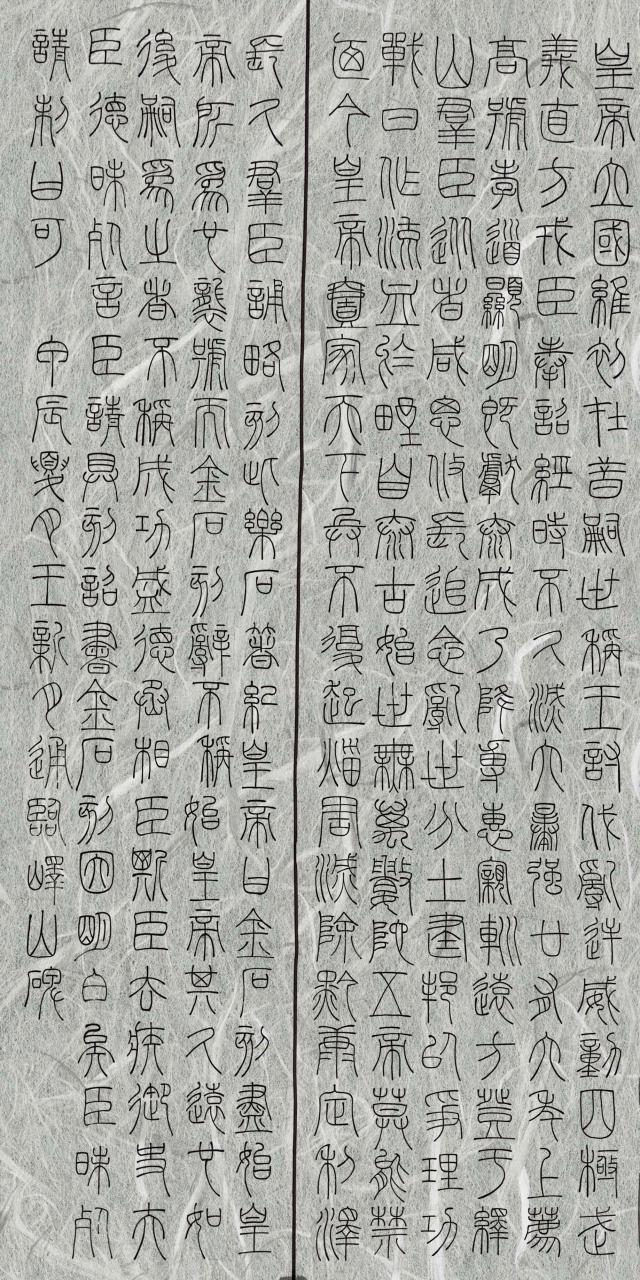 皇帝立國維初在昔嗣世稱王討伐亂逆威動四極武
義直方戎臣奉詔經時不久滅六暴强廿有六年上薦
高號孝道顯明既獻泰成乃降專惠親巡遠方登于繹
山羣臣從者咸思攸長追念亂世分土建邦以爭理功
戰曰作流血於野自泰古始世無萬數陀五帝莫能禁
今皇帝壹家天下兵不復起災害滅除黔康定利澤
長久羣臣誦略刻此樂石著紀皇帝曰金石刻盡始皇
帝所爲也襲號而金石刻辭不稱始皇帝其久遠也如
後嗣爲之者不稱成功盛德丞相臣斯臣去疾御史夫
臣德昧死言臣請具刻詔書金石刻因明白矣臣昧死
請制曰可 甲辰夏月王新月通臨嶧山碑